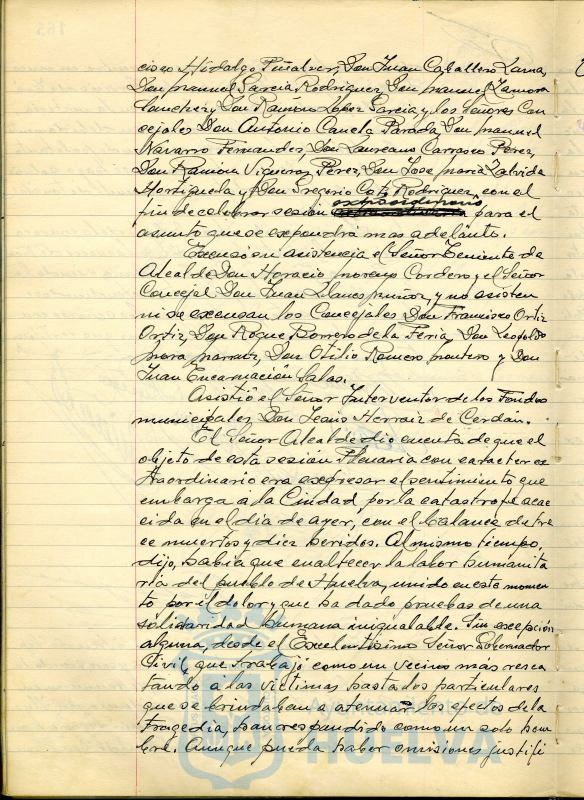 cisco Hidalgo Piñalver, Don Juan Caballero Lama,
Don Manuel García Rodríguez, Don Manuel Zamora
Sanchez, Don Ramón Lopez García, y los señores Con
cejales Don Antonio Canela Parada, Don Manuel
Navarro Fernandez, Don Laureano Carrasco Perez,
Don Ramón Vigueras Perez, Don Jose María Zalvide
Hortigüela y Don Gregorio Cots Rodriguez, con el
fin de celebrar sesión extraordinaria para el
asunto que se expondrá mas adelante.
Excusó su asistencia el Señor Teniente de
Alcalde Don Horacio Moreno Cordero, y el Señor
Concejal Don Juan Llanes Muñoz, y no asisten
ni se excusan los Concejales Don Francisco Ortiz
Ortiz, Don Roque Borrero de la Feria, Don Leopoldo
Mora Don Otilio Romero Montero y Don
Juan Encarnación Salas.
Asistió el Señor Interventor de los Fondos
municipales, Don Jesús Herraiz de Cerdán.
El Señor Alcalde dio cuenta de que el
objeto de esta sesión Plenaria con caracter ex
traordinario era expresar el sentimiento que
embarga a la Ciudad por la catastrofe acae
cida en el dia de ayer, con el balance de tre
ce muertos y diez heridos. Al mismo tiempo,
dijo, había que enaltecer la labor humanita
ria del pueblo de Huelva, unido en este momen
to por el dolor y que ha dado pruebas de una
solidaridad humana inigualable. Sin excepción
alguna, desde el Excelentísimo Señor Gobernador
Civil, que trabajó como un vecino más resca
tando a las víctimas hasta los particulares
que se brindaban a atenuar los efectos de la
tragedia, han respondido como un solo hom
bre. Aunque pueda haber omisiones justifi
HUELVA